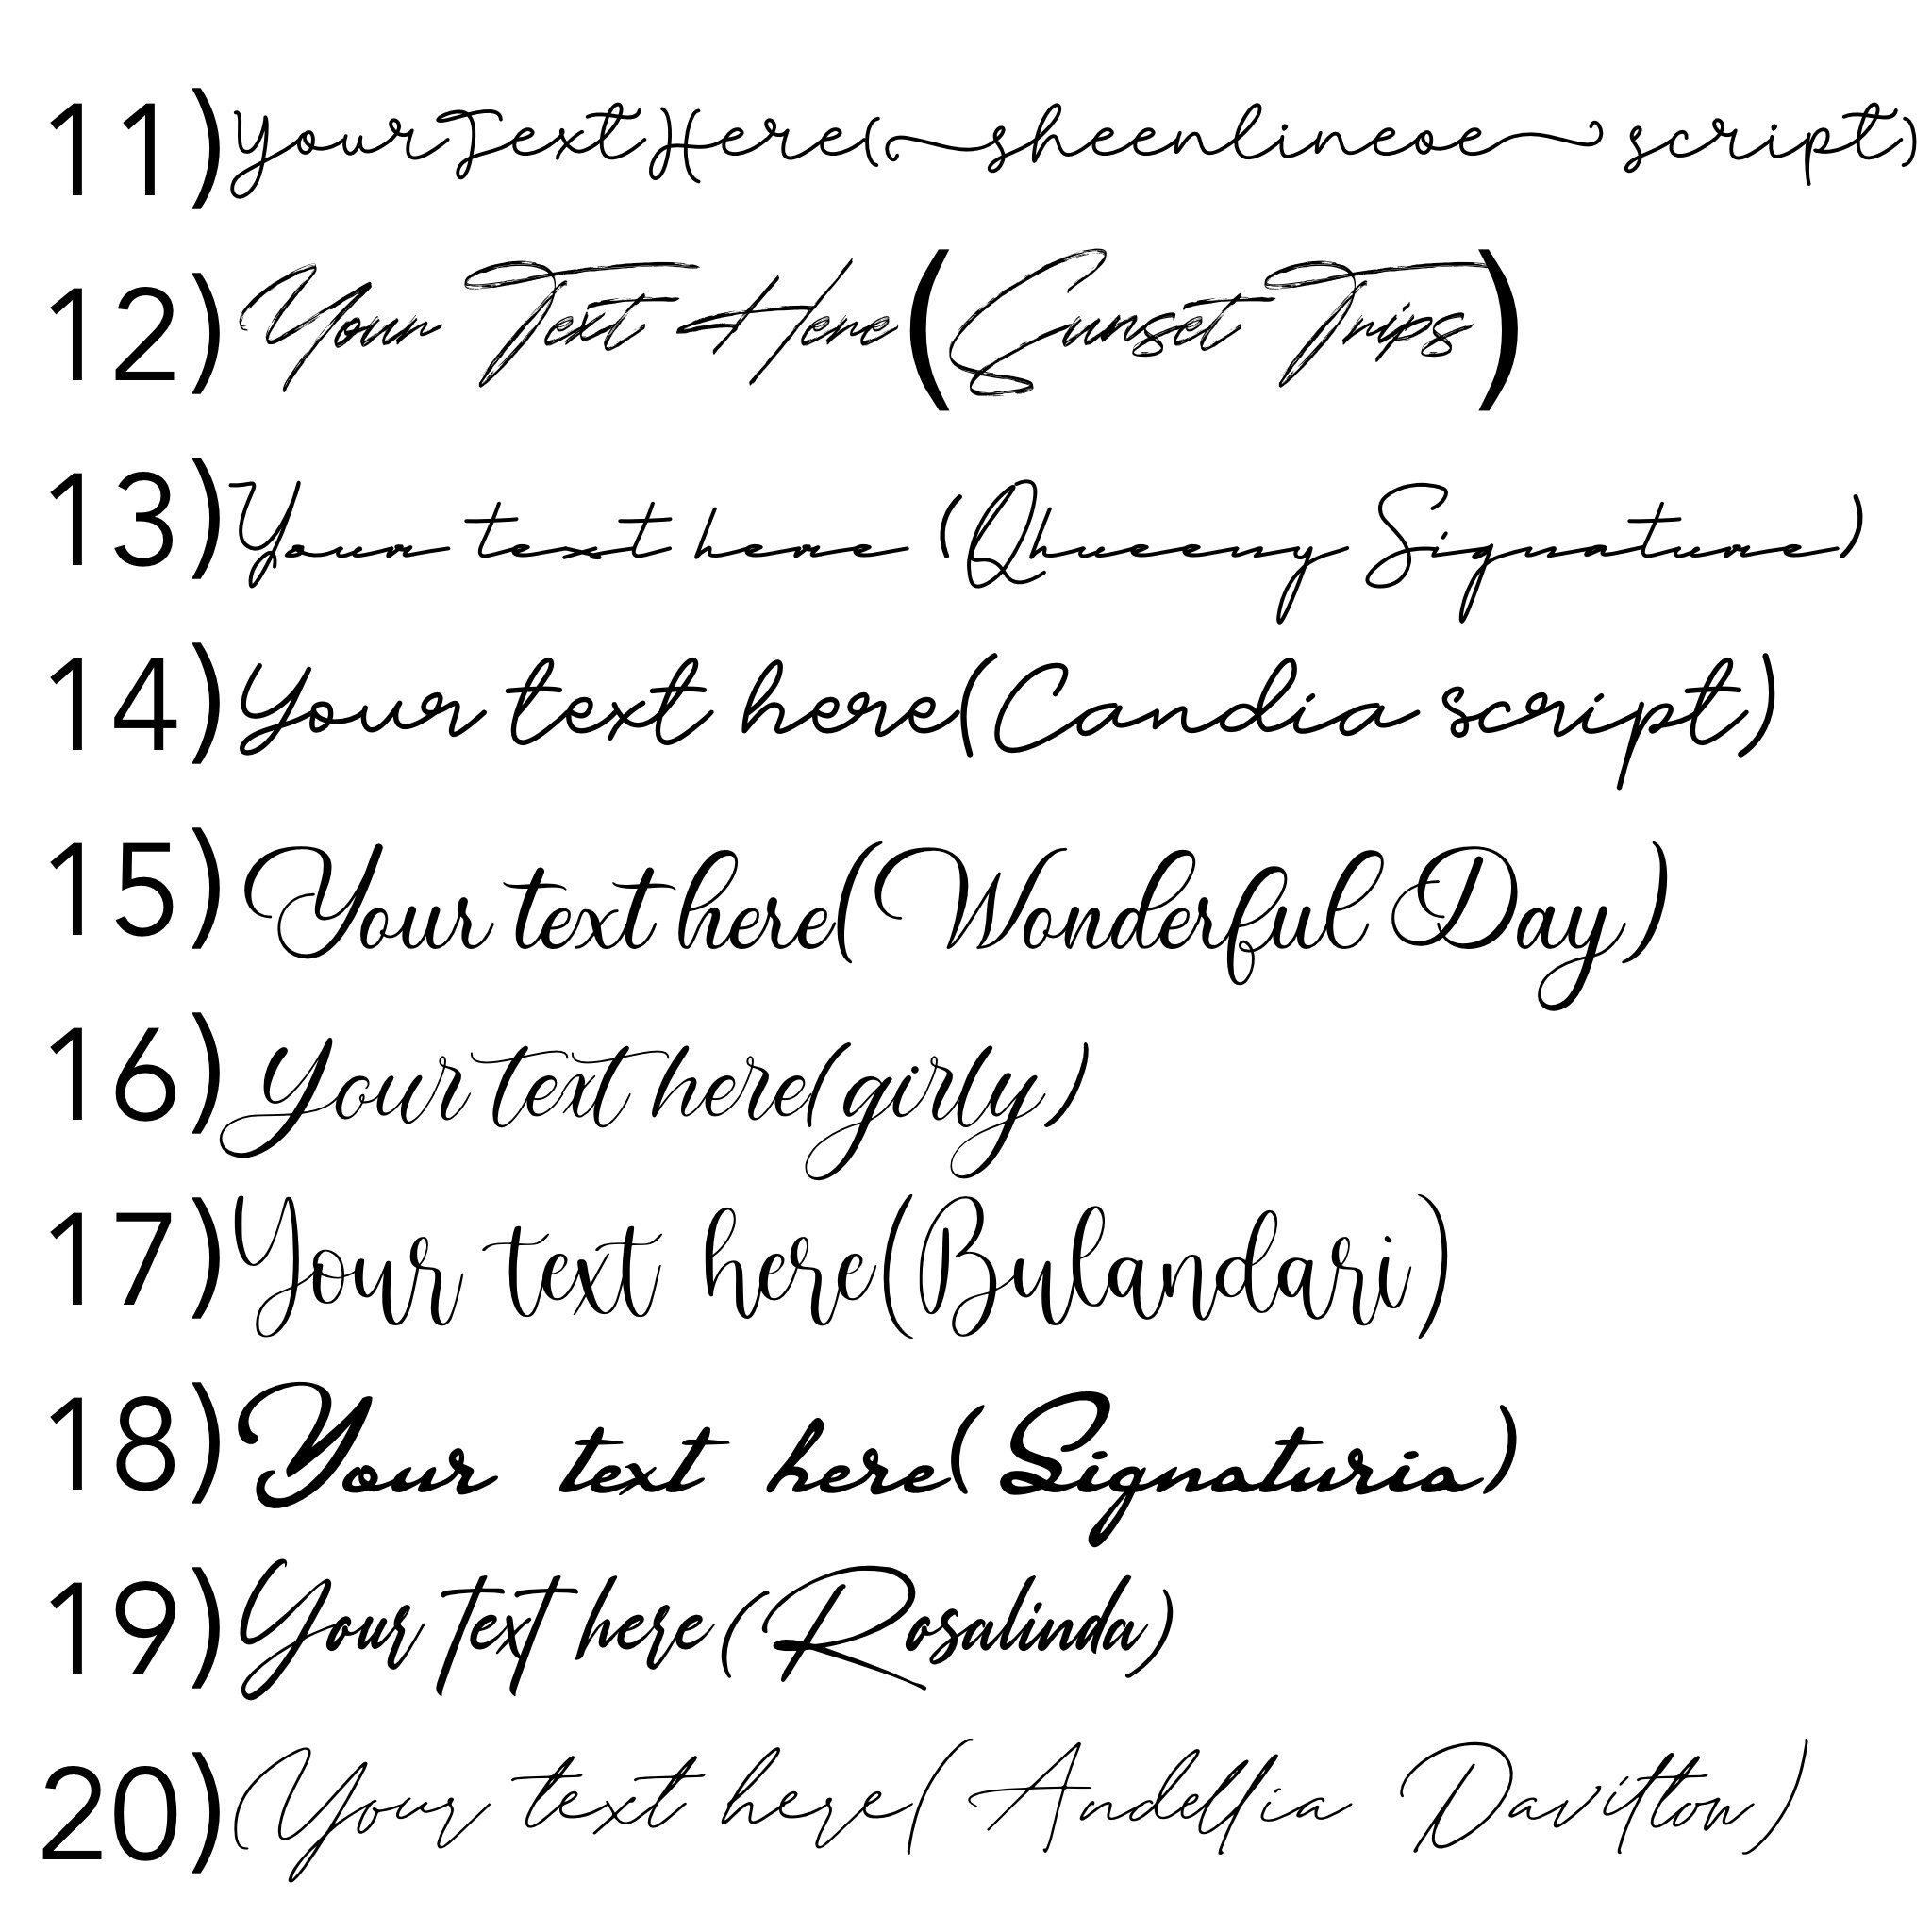 11) Your Text Here( sheenlineoe script)
12) Your Text Here (Sunset Trips)
13) Your text here (Qhueeny Signature)
14) Your text here(Candia script)
15) Your text here(Wonderful Day)
16) Your text here(girly)
17) Your text here(Bulandari)
18) Your text here( Signaturia)
19) Your text here (Rosalinda)
20) Your text here( Davitton)